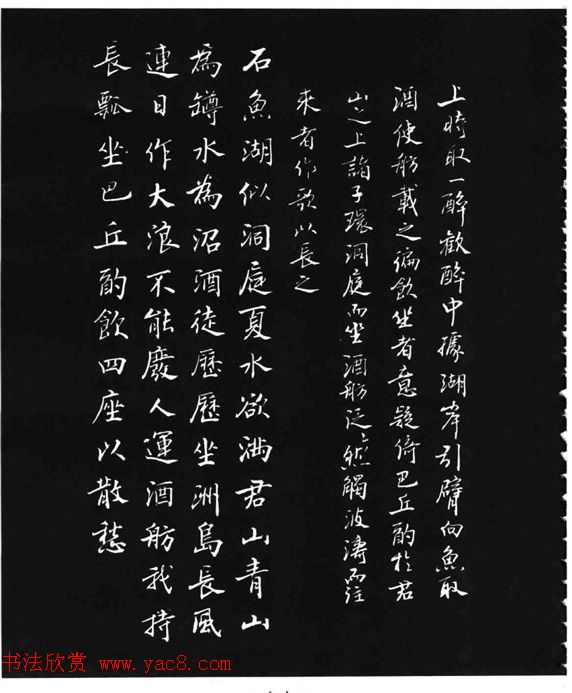 上時取一醉歡醉中據湖岸引臂向魚取
酒使舫載之徧飲坐者意疑倚巴丘酌於君
山之上諸子環洞庭而坐酒舫泛泛然觸波濤而往
來者作歌以長之
石魚湖似洞庭夏水欲滿君山青山
為罇水為沼酒徒歷歷坐洲島長風
連日作大浪不能廢人運酒舫我持
長瓢坐巴丘酌飲四座以散愁
书法欣赏 www.yac8.com